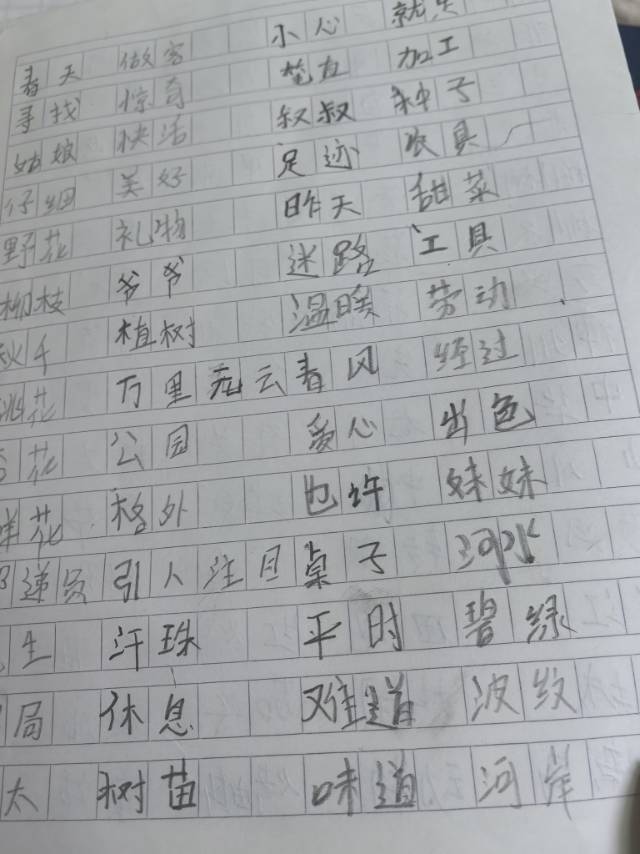 春天 做客 小心
寻找 惊奇 笔友 加工
姑娘 快活 叔叔 种子
仔细 美好 足迹 农具
野花 礼物 昨天 甜菜
柳枝 爷爷 迷路 工具
秋千 植树 温暖 劳动
桃花 万里无云 春风 经过
杏花 公园 爱心 出色
鲜花 格外 也许 妹妹
递员 引人注目 桌子 河水
生 汗珠 平时 碧绿
局 休息 难道 波纹
太 树苗 味道 河岸